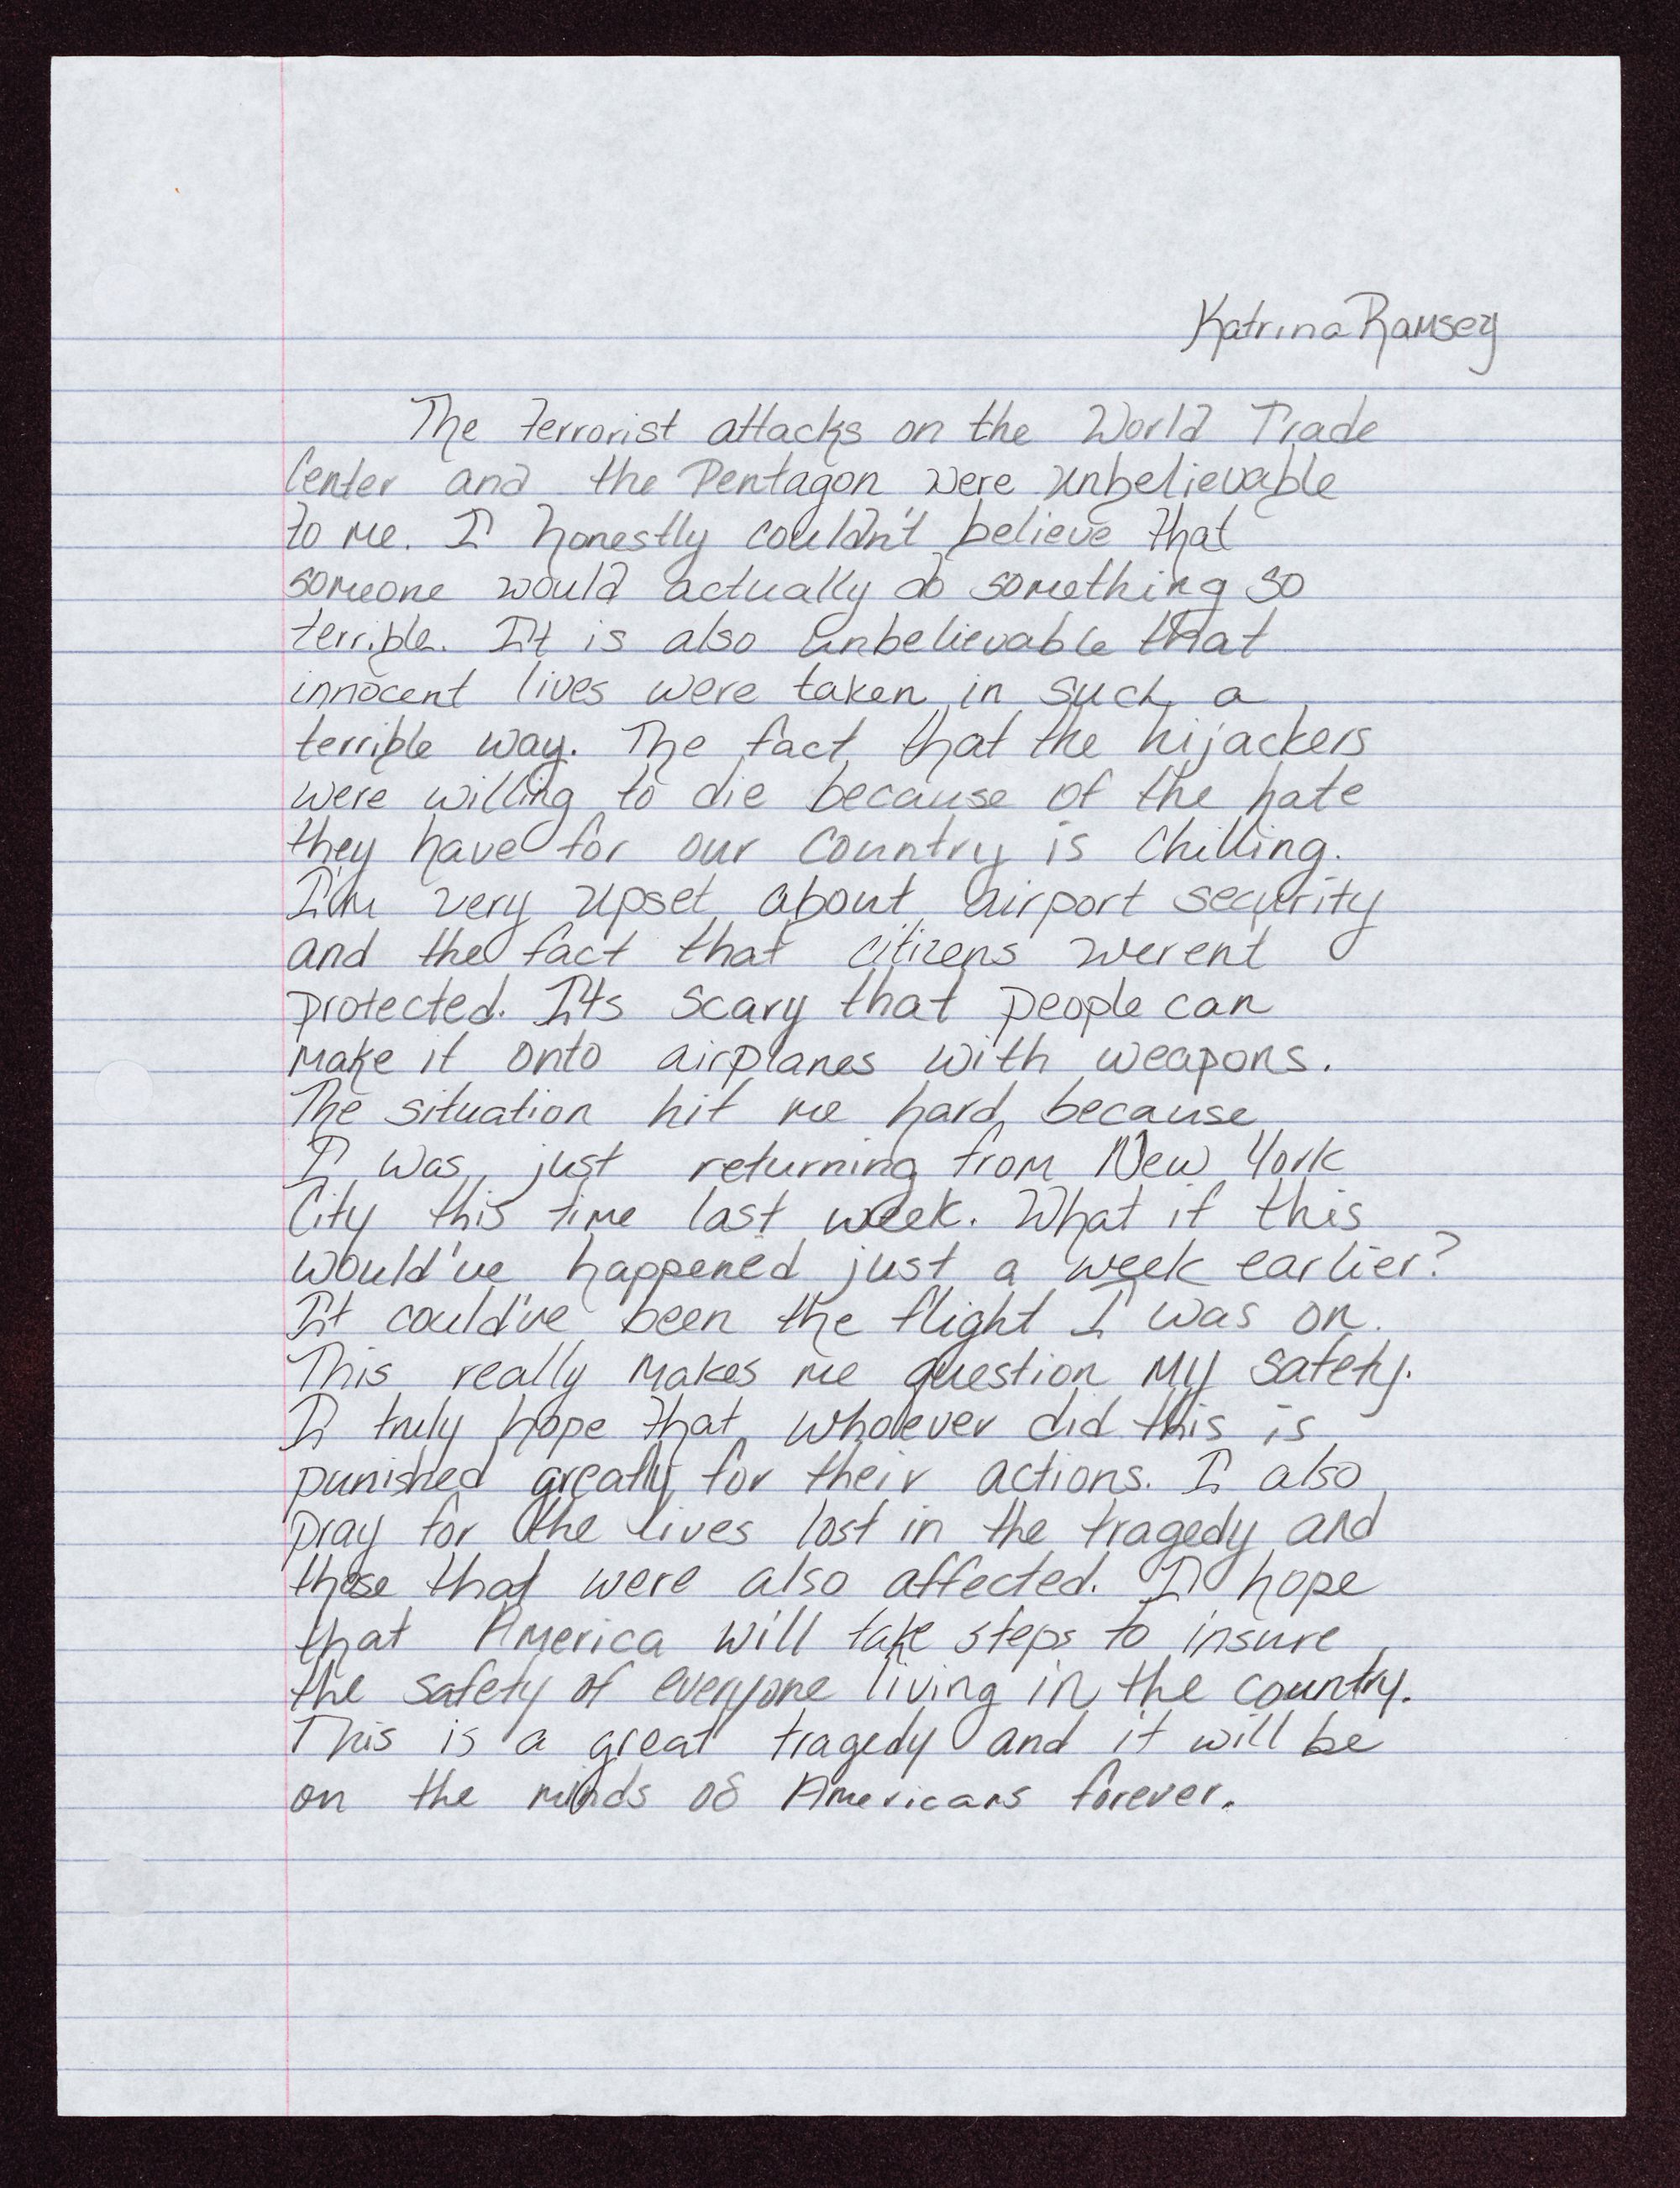 Katrina Ramsey
The terrorist attacks on the World Trade
Center and the Pentagon were unbelievable
to me. I honestly couldn't believe that
someone would actually do something so
terrible. It is also unbelievable that
innocent lives were taken in such a
terrible way. The fact that the hijackers
were willing to die because of the hate
they have for our country is chilling.
I'm very upset about airport security
and the fact that citizens werent
protected. Its scary that people can
make it onto airplanes with weapons.
The situation hit me hard because
I was just returning from New York
City this time last week. What if this
would've happened just a week earlier?
It could've been the flight I was on.
This really makes me question my safety.
I truly hope that whoever did this is
punished greatly for their actions. I also
pray for the lives lost in the tragedy and
those that were also affected. I hope
that America will take steps to insure
the safety of everyone living in the country.
This is a great tragedy and it will be
on the minds of Americans forever.